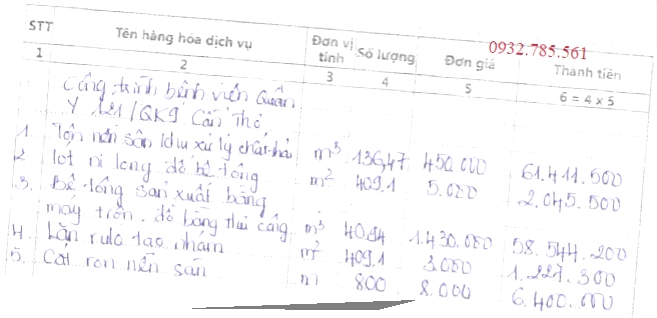 0932.785.561
STT Tên hàng hóa dịch vụ Đơn vị tính Số lượng Đơn giá Thành tiền
1 2 3 4 5 6 = 4 x 5
Công trình bệnh viện Quân
Y 121/QK9 Cần Thơ
1 Tôn nền sân khu xử lý chất thải m³ 136,47 450.000 61.411.500
2 Lót ni long đổ bê tông m² 409,1 5.000 2.045.500
3. Bê tông sản xuất bằng
máy trộn. đổ bằng thủ công m³ 40,94 1.430.000 58.544.200
4. Lăn rulo tạo nhám m² 409,1 3.000 1.227.300
5. Cắt ron nền sân m 800 8.000 6.400.000